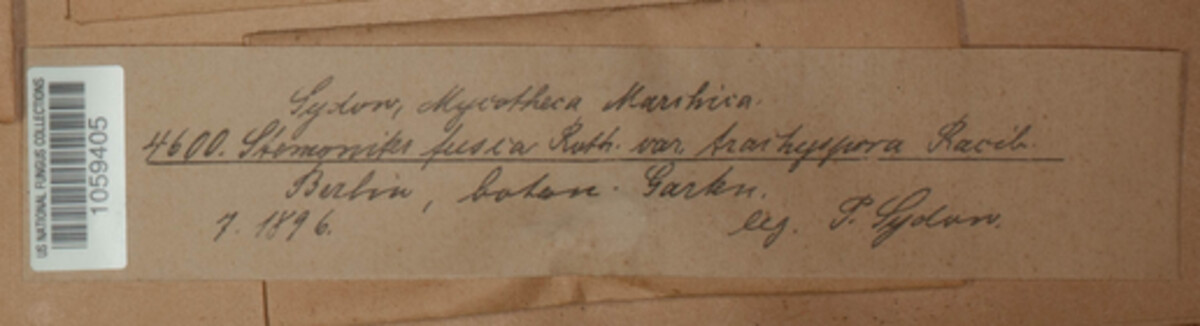 US NATIONAL FUNGUS COLLECTIONS
1059405
Sydow, Mycotheca Marchica.
4600. Stemonitis fusca Roth. var. trachyspora Racib.
Berlin, botan. Garten.
7. 1896.
leg. P. Sydow.